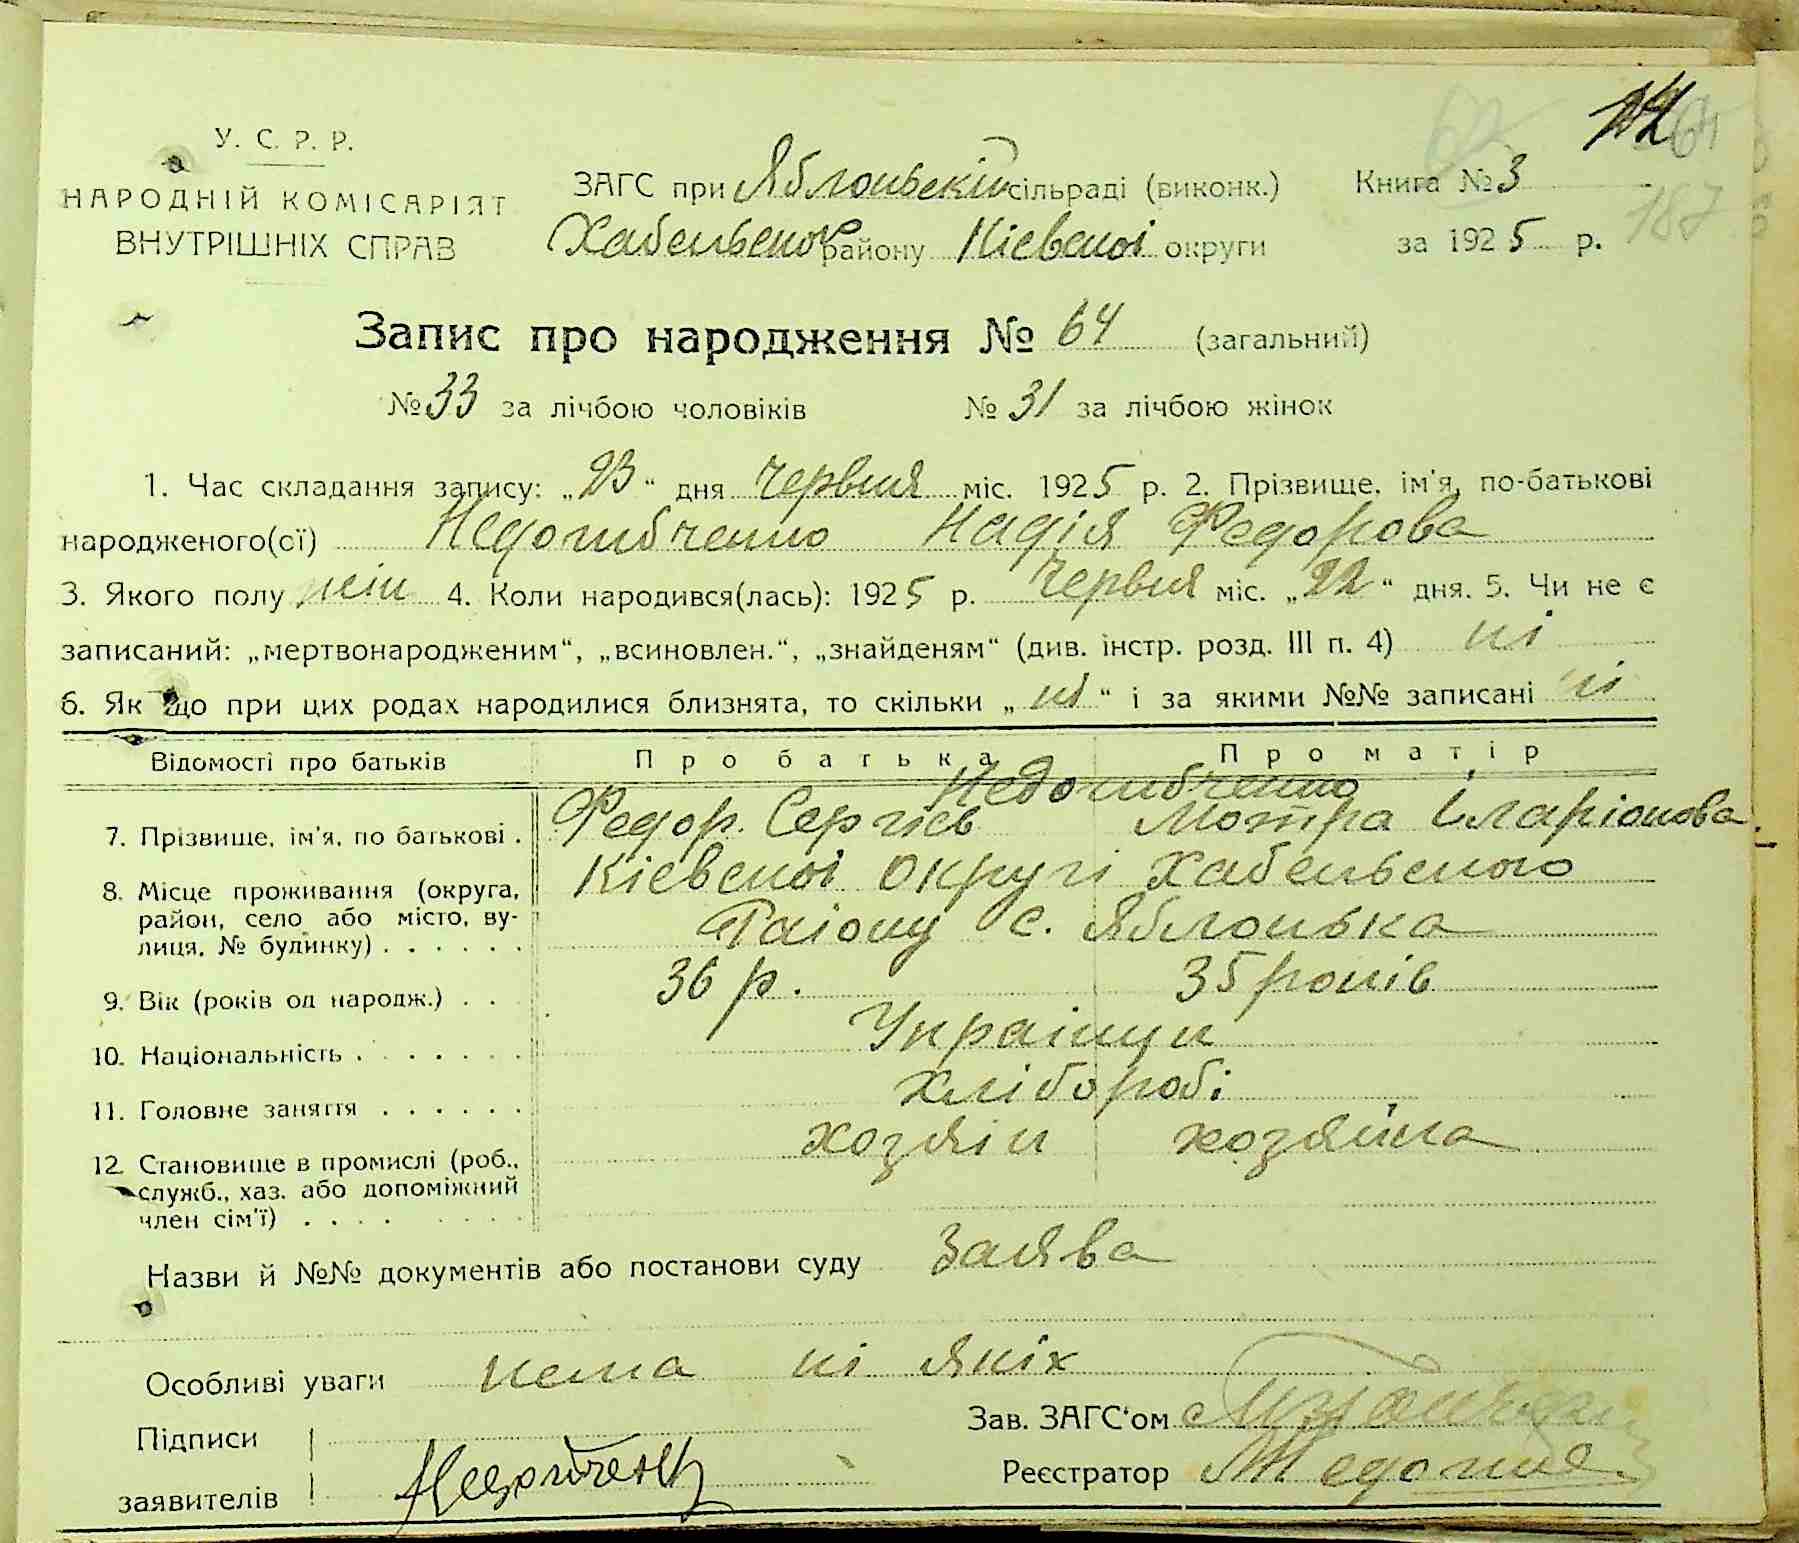 У. С. Р. Р.
НАРОДНІЙ КОМІСАРІЯТ
ВНУТРІШНІХ СПРАВ
ЗАГС при Яблонській сільраді (виконк.)
Хабенського району Кіевскоі округи
Книга № 3
за 1925 р.
187
Запис про народження № 64 (загальний)
№ 33 за лічбою чоловіків № 31 за лічбою жінок
1. Час складання запису: „23“ дня червня міс. 1925 р. 2. Прізвище, ім'я, по-батькові
народженого(сї) Недогибченко Надія Федорова
3. Якого полу жін 4. Коли народився(лась): 1925 р. Червня міс. „22“ дня. 5. Чи не є
записаний: „мертвонародженим“, „всиновлен.“, „знайденям“ (див. інстр. розд. III п. 4) ні
6. Як що при цих родах народилися близнята, то скільки „ні“ і за якими №№ записані ні
Відомості про батьків Про батька Про матір
Недогибченко
7. Прізвище, ім'я, по батькові . Федор. Сергієв Мотра Іларіонова
8. Місце проживання (округа, район, село або місто, вулиця, № будинку) . . . . . . Кіевскоі округі Хабенського
Раіону с. Яблонька
9. Вік (років од народж.) . . 36 р. 35 років
10. Національність . . . . . . . Украінци
11. Головне заняття . . . . . . Хліборобі
12. Становище в промислі (роб., служб., хаз. або допоміжний член сім'ї) . . . . Хозяін хозяйка
Назви й №№ документів або постанови суду Заява
Особливі уваги нема ні якіх
Зав. ЗАГС'ом
Підписи
заявителів
Реєстратор